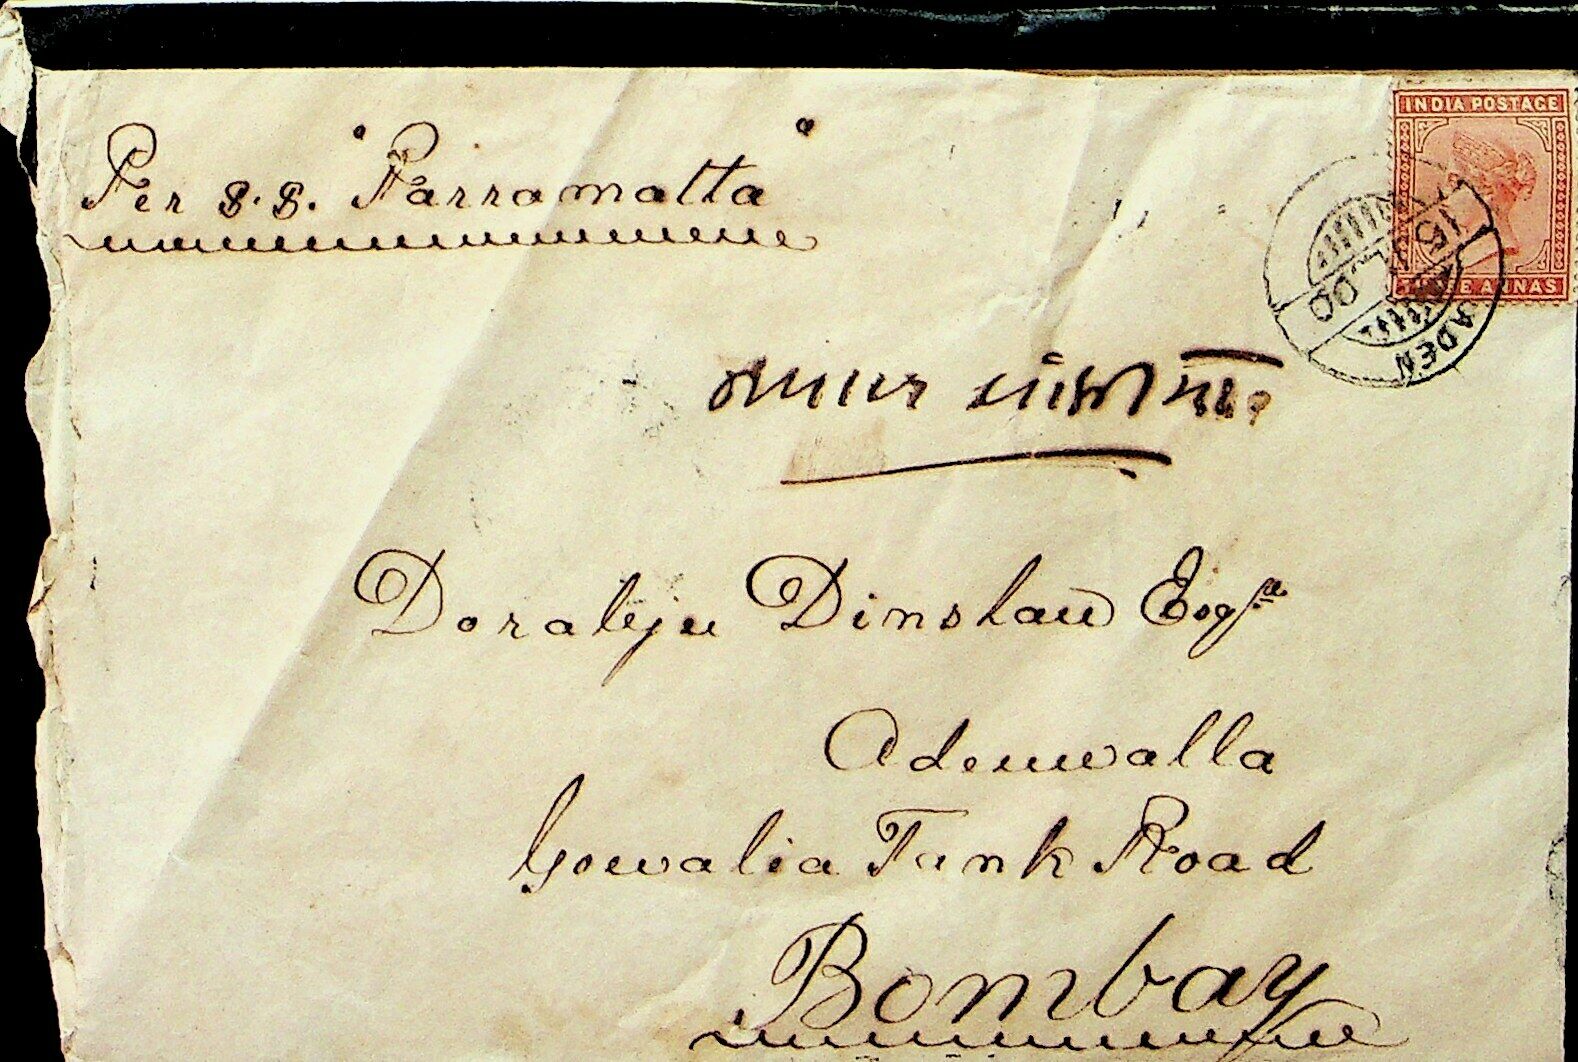 Per S.S. "Parramatta"
INDIA POSTAGE
THREE ANNAS
ADEN
15
00
Dorabjee Dinshaw Esqre
Adenwalla
Gowalia Tank Road
Bombay